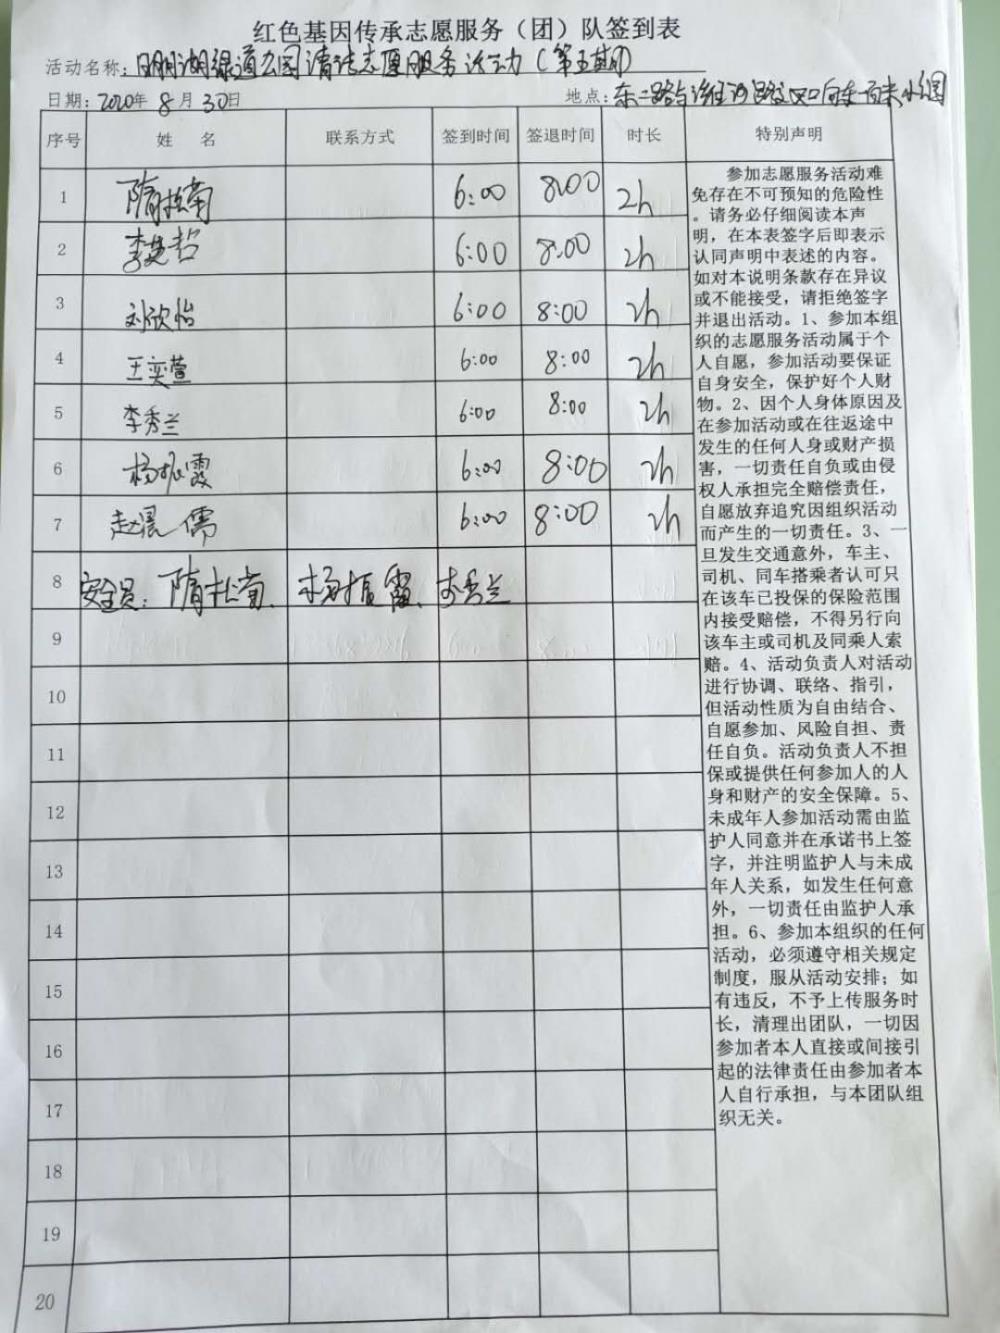 红色基因传承志愿服务（团）队签到表
活动名称：明湖绿道公园清洁志愿服务活动（第五期）
日期：2020年 8月 30日 地点：东二路与潍
序号 姓 名 联系方式 签到时间 签退时间 时长 特别声明
1 隋松南 6:00 8:00 2h
2 李 哲 6:00 8:00 2h
3 刘欣怡 6:00 8:00 2h
4 王奕萱 6:00 8:00 2h
5 李秀兰 6:00 8:00 2h
6 杨振霞 6:00 8:00 2h
7 赵晨儒 6:00 8:00 2h
8 安全员：隋松南、杨振霞、李秀兰
9
10
11
12
13
14
15
16
17
18
19
20
参加志愿服务活动难
免存在不可预知的危险性
。请务必仔细阅读本声
明，在本表签字后即表示
认同声明中表述的内容。
如对本说明条款存在异议
或不能接受，请拒绝签字
并退出活动。1、参加本组
织的志愿服务活动属于个
人自愿，参加活动要保证
自身安全，保护好个人财
物。2、因个人身体原因及
在参加活动或在往返途中
发生的任何人身或财产损
害，一切责任自负或由侵
权人承担完全赔偿责任，
自愿放弃追究因组织活动
而产生的一切责任。3、一
旦发生交通意外，车主、
司机、同车搭乘者认可只
在该车已投保的保险范围
内接受赔偿，不得另行向
该车主或司机及同乘人索
赔。4、活动负责人对活动
进行协调、联络、指引，
但活动性质为自由结合、
自愿参加、风险自担、责
任自负。活动负责人不担
保或提供任何参加人的人
身和财产的安全保障。5、
未成年人参加活动需由监
护人同意并在承诺书上签
字，并注明监护人与未成
年人关系，如发生任何意
外，一切责任由监护人承
担。6、参加本组织的任何
活动，必须遵守相关规定
制度，服从活动安排；如
有违反，不予上传服务时
长，清理出团队，一切因
参加者本人直接或间接引
起的法律责任由参加者本
人自行承担，与本团队组
织无关。